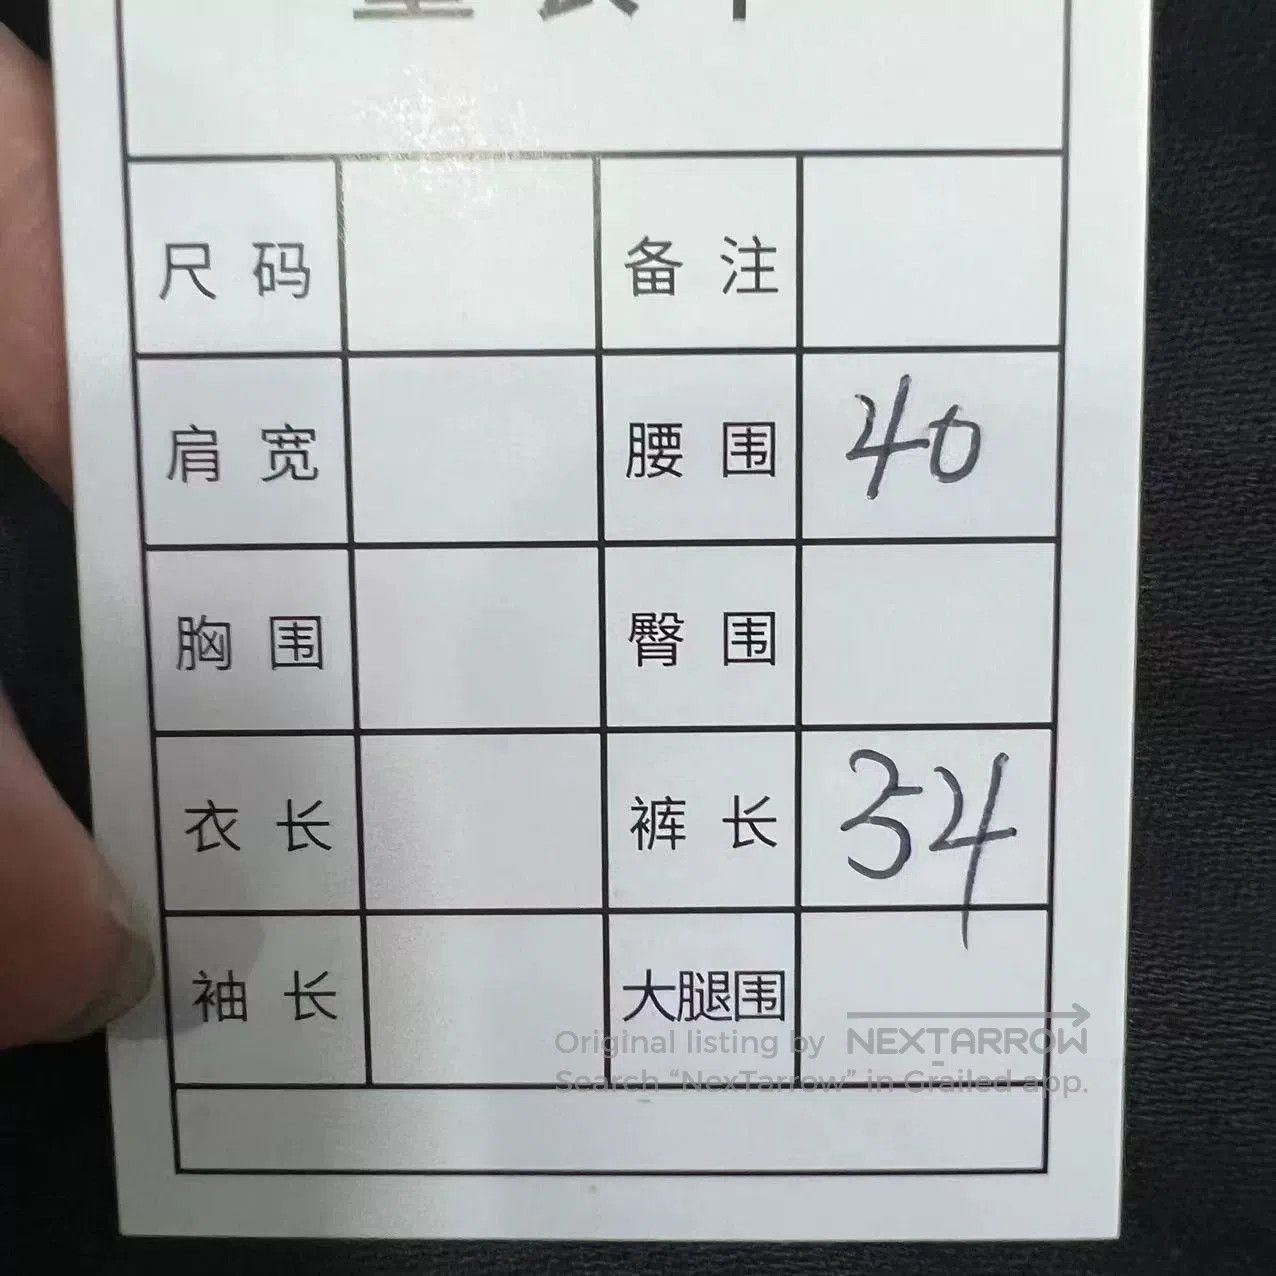 尺码 备注
肩宽 腰围 40
胸围 臀围
衣长 裤长 54
袖长 大腿围
Original listing by NEXTARROW
Search “NexTarrow” in Grailed app.